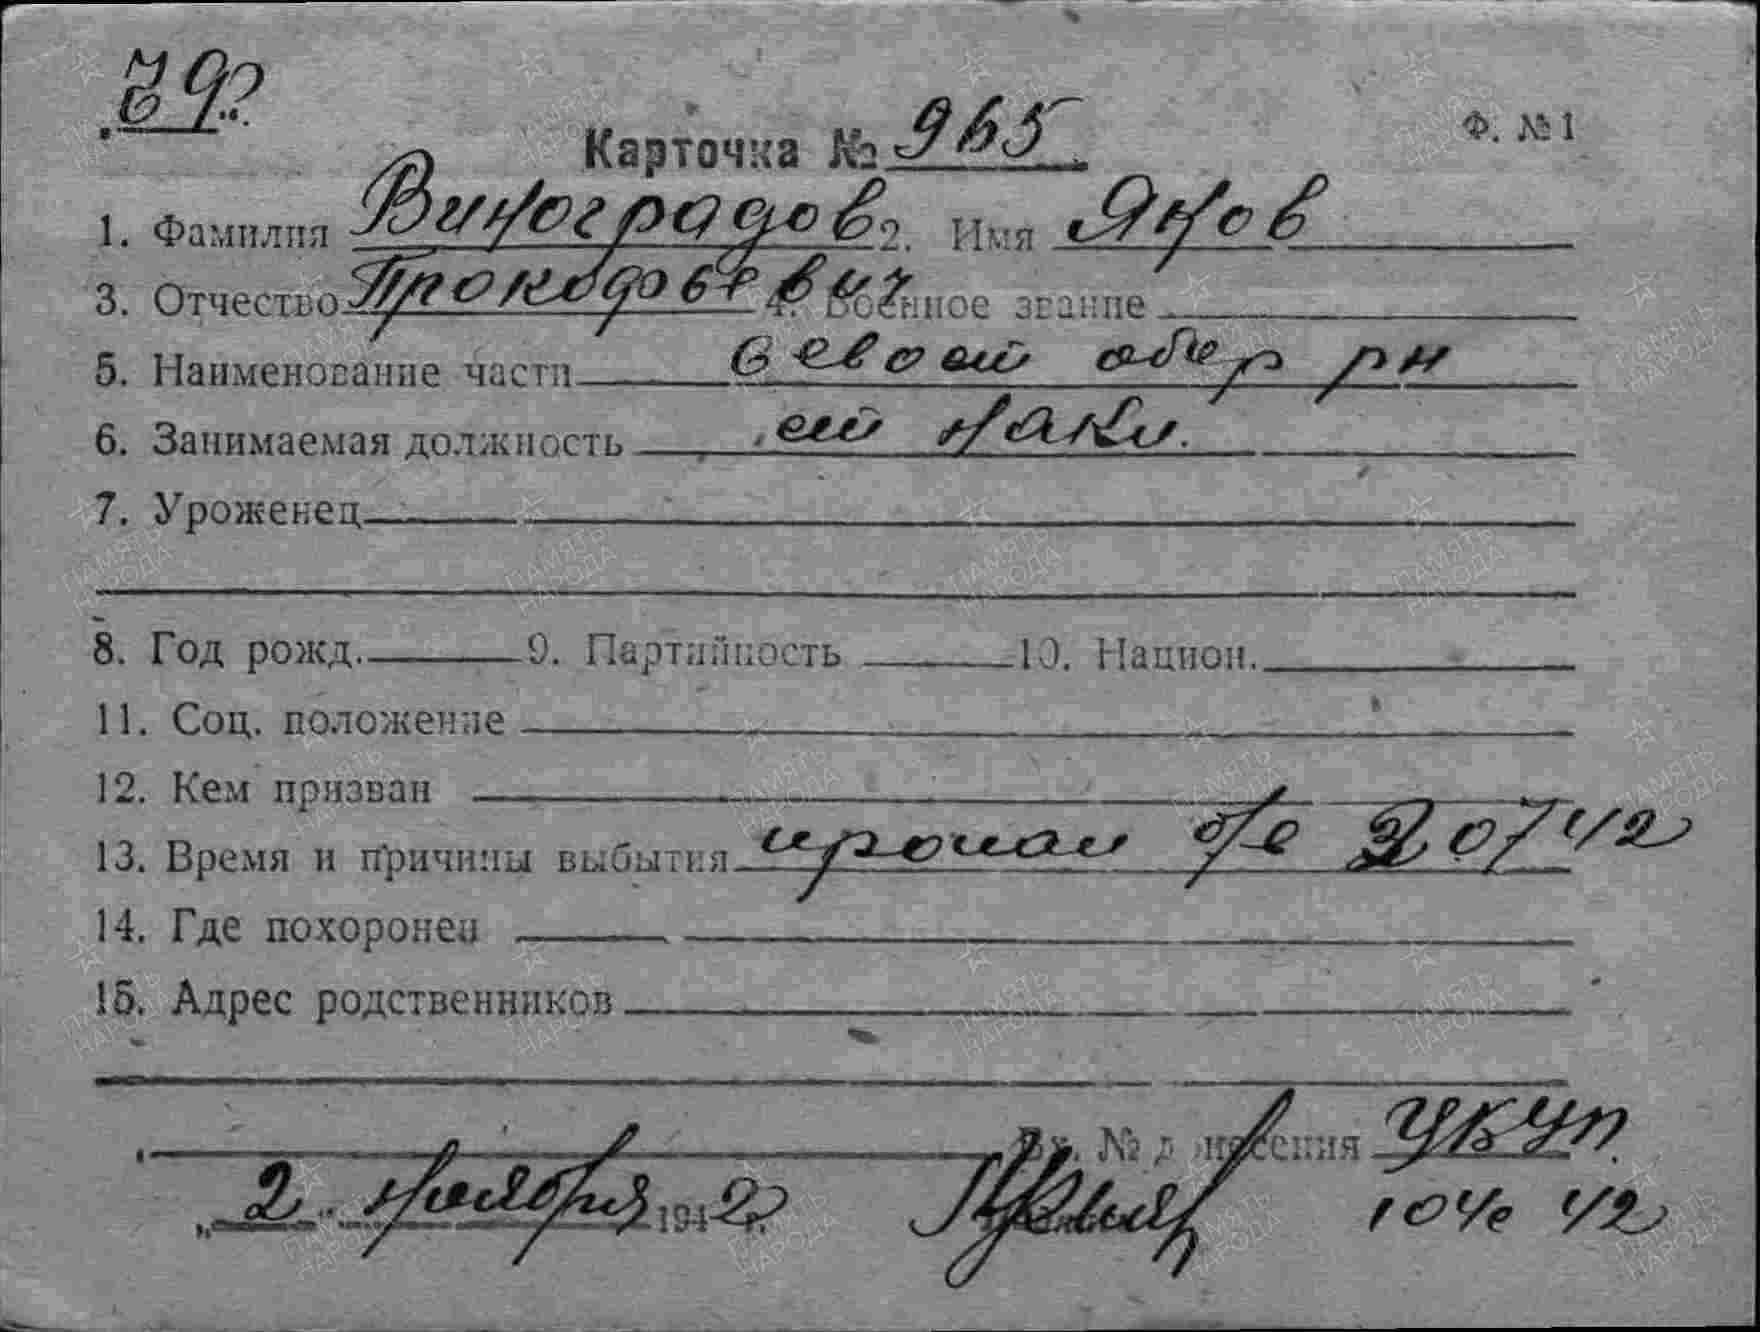 Карточка № 965
Ф. № 1
1. Фамилия Виноградов 2. Имя Яков
3. Отчество Прокофьевич 4. Военное звание
5. Наименование части Севост обор рн
6. Занимаемая должность
7. Уроженец
8. Год рожд. 9. Партийность 10. Национ.
11. Соц. положение
12. Кем призван
13. Время и причины выбытия пропал б/в 2 07 42
14. Где похоронен
15. Адрес родственников
Вх. № донесения УКУП
„2“ ноября 1942 г.
ПАМЯТЬ НАРОДА